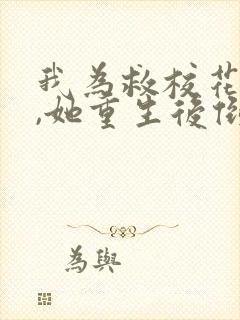 我為救校花
,她重生後
為與